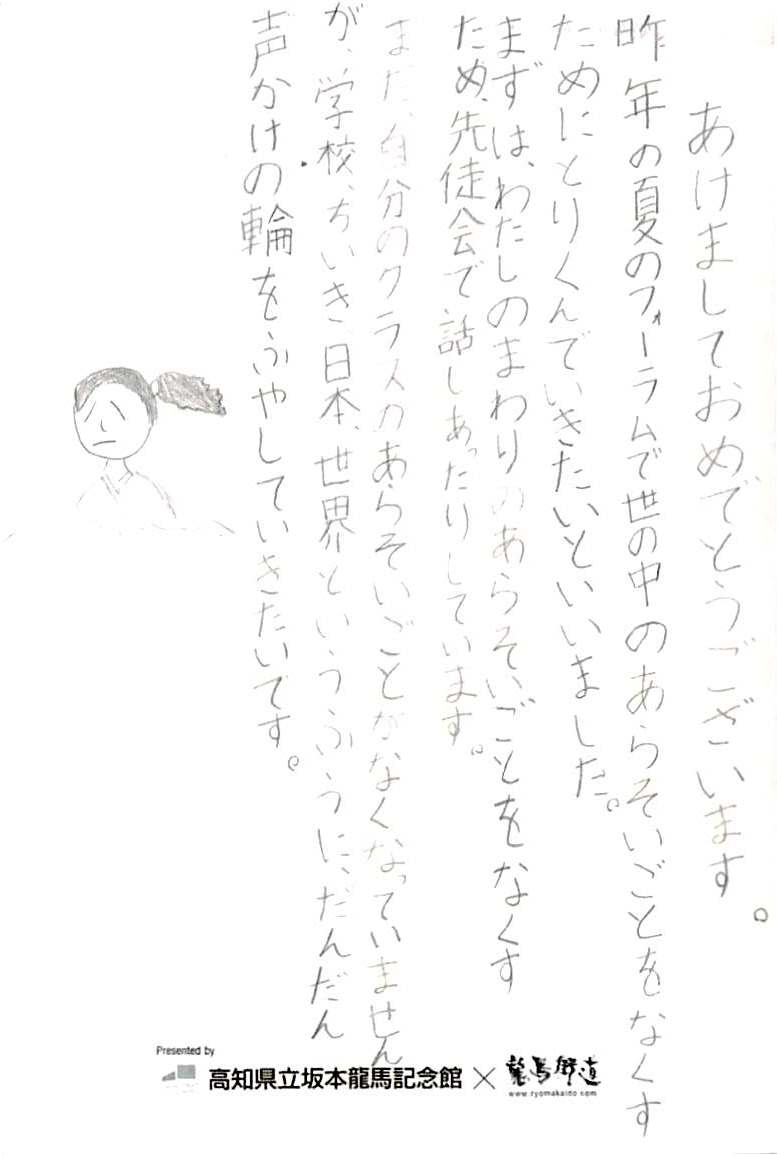 あけましておめでとうございます。
昨年の夏のフォーラムで世の中のあらそいごとをなくす
ためにとりくんでいきたいといいました。
まずは、わたしのまわりのあらそいごとをなくす
ため、先徒会で話しあったりしています。
まだ、自分のクラスのあらそいごとがなくなっていません
が、学校、ちいき、日本、世界というふうに、だんだん
声かけの輪をふやしていきたいです。
Presented by
高知県立坂本龍馬記念館×龍馬街道
www.ryomakaido.com